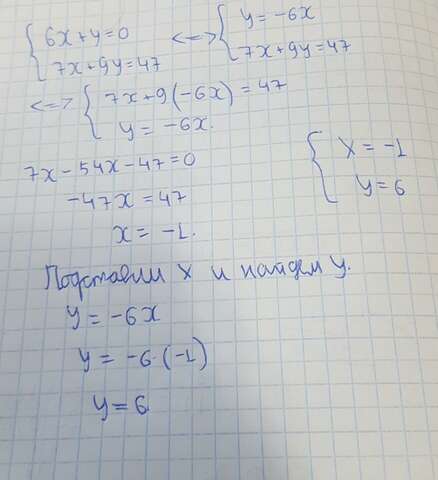 { 6x+y=0 <=> { y = -6x
7x+9y=47 7x+9y=47
<=> { 7x+9(-6x) = 47
y = -6x.
7x-54x-47=0
-47x = 47
x = -1.
{ x = -1
y = 6
Подставим x и найдем y.
y = -6x
y = -6·(-1)
y = 6